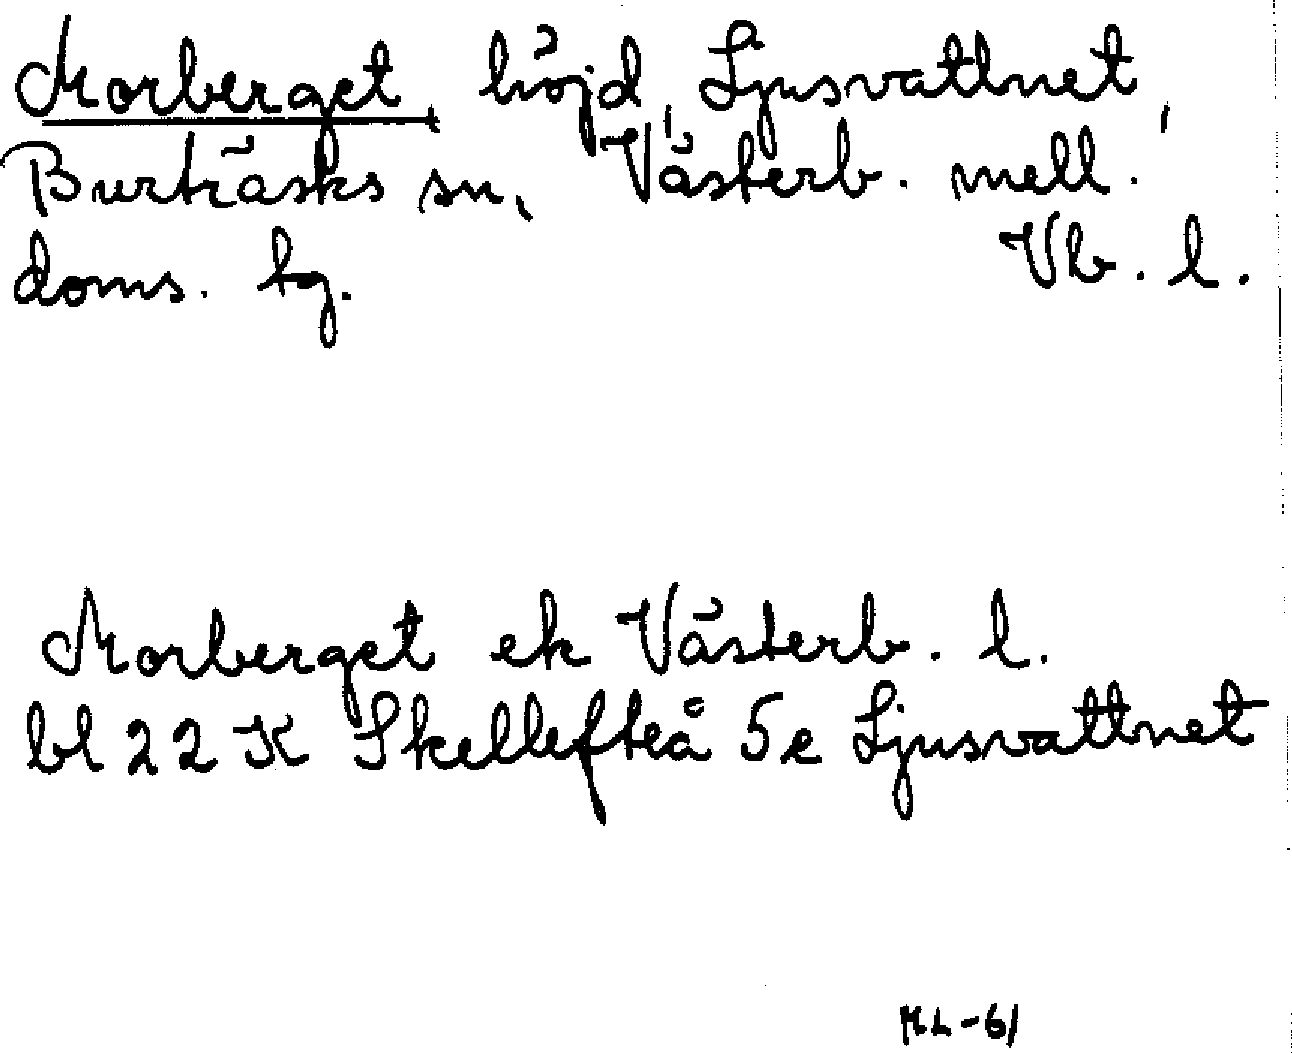 Morberget, höjd, Ljusvattnet,
Burträsks sn, Västerb. mell.
doms. tg. Vb. l.
Morberget ek Västerb. l.
bl 22 K Skellefteå 5e Ljusvattnet
ML-61